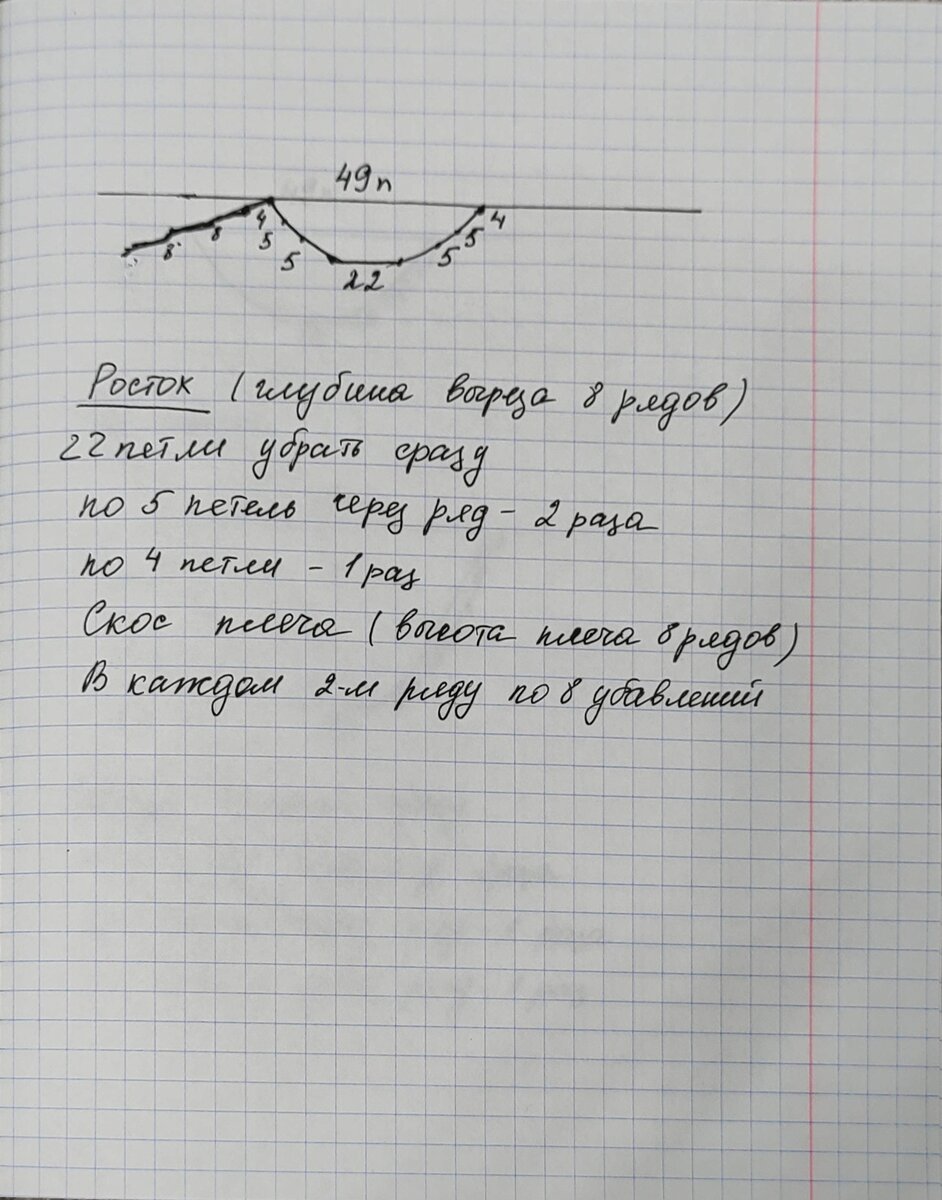 49п
4
4
8
8
5
5
5
5
22
Росток (глубина выреза 8 рядов)
22 петли убрать сразу
по 5 петель через ряд - 2 раза
по 4 петли - 1 раз
Скос плеча (высота плеча 8 рядов)
В каждом 2-м ряду по 8 убавлений